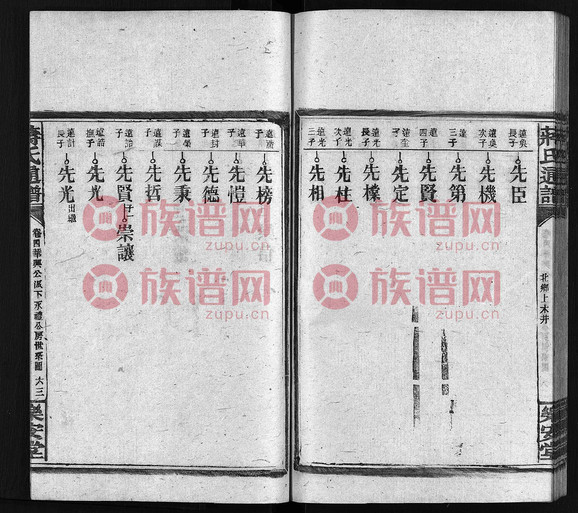 蔣氏通譜
北鄉上木井
樂安堂
遠奐長子 先臣
遠奐次子 先機
三子 先第
四子 先賢
先定
遠光長子 先檏
遠光次子 先柱
遠光三子 先相
子 先榜
遠華子 先愷
子 先德
遠榮子 先秉
子 先哲
遠諮子 先賢 廿一 崇讓
遠諮撫子 先光
遠計長子 先光 出繼
蔣氏通譜
卷四華興公派下永禮公房世系圖 六三
樂安堂
族谱网
zupu.cn
族谱网
zupu.cn
族谱网
zupu.cn
族谱网
zupu.cn